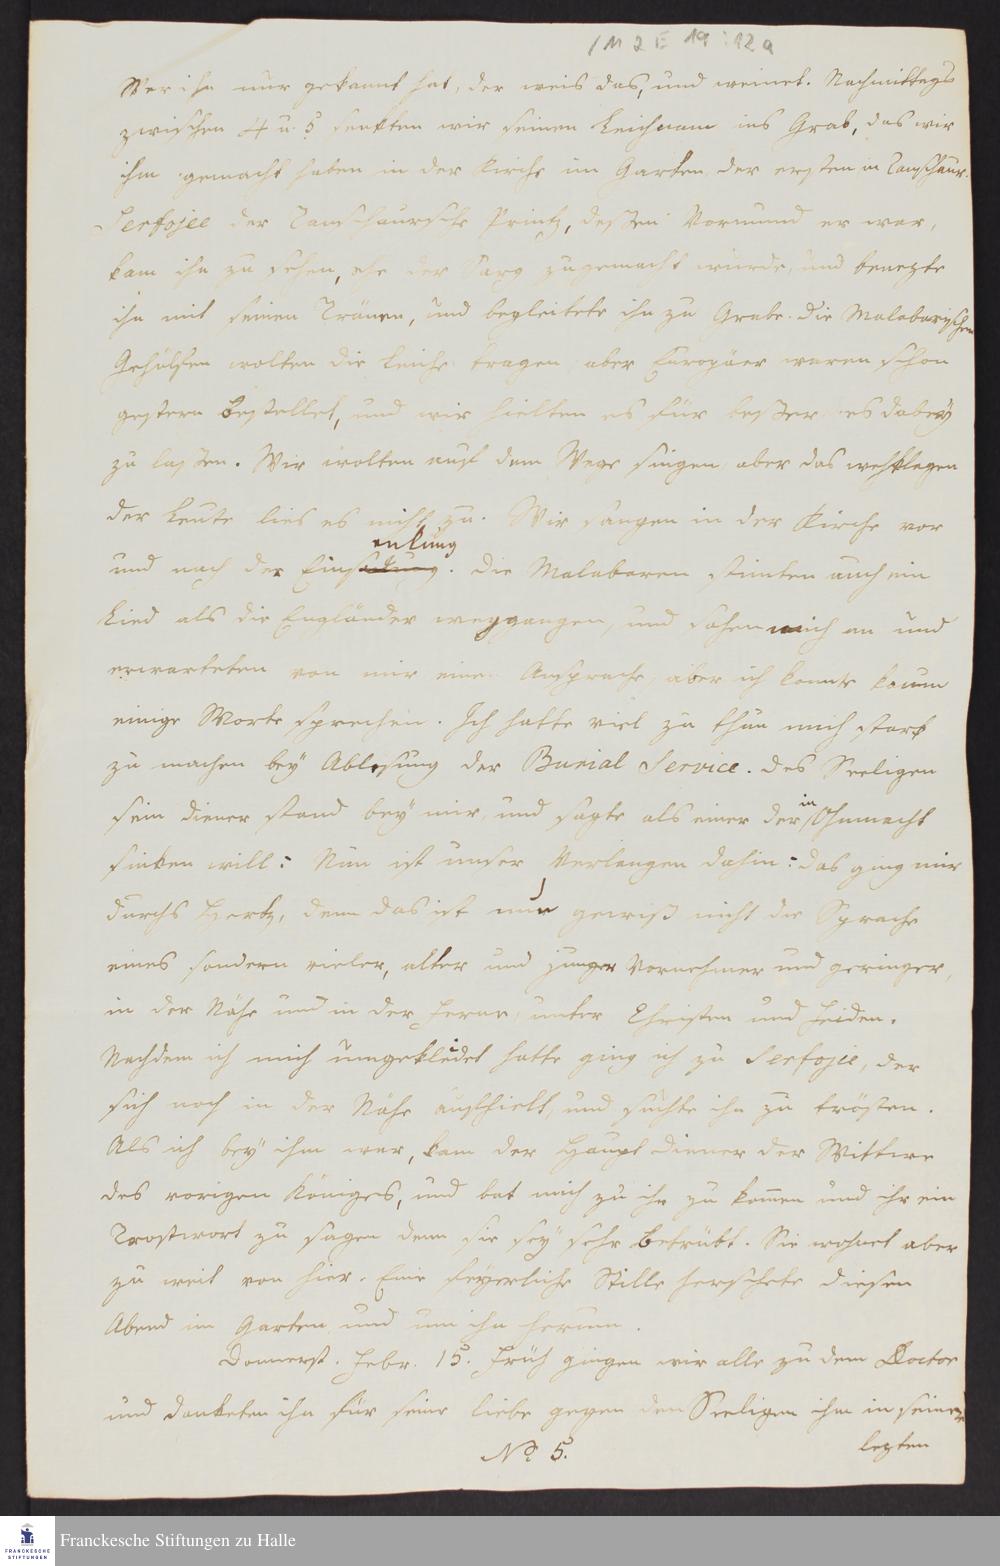 1 M 2 E 19 : 12 a
Wer ihn nur gekannt hat, der weis das, und weinet. Nachmittags
zwischen 4 u. 5 senkten wir seinen Leichnam ins Grab, das wir
ihm gemacht haben in der Kirche im Garten der ersten in Tanschaur.
Serfojee der Tanschaursche Printz, deßen Vormund er war,
kam ihn zu sehen, ehe der Sarg zugemacht wurde, und benezte
ihn mit seinen Tränen, und begleitete ihn zu Grabe. Die Malabarischen
Gehülfen wolten die Leiche tragen aber Europäer waren schon
gestern bestellet, und wir hielten es für beßer es dabey
zu laßen. Wir wolten auf dem Wege singen, aber das wehklagen
der Leute lies es nicht zu. Wir sangen in der Kirche vor
enkung
und nach der Eins. Die Malabaren stimten auch ein
Lied als die Engländer weggangen, und sahen mich an und
erwarteten von mir einen Ansprache, aber ich konnte kaum
einige Worte sprechen. Ich hatte viel zu thun mich stark
zu machen bey Ablesung der Burial Service. Des Seeligen
sein diener stand bey mir, und sagte als einer der in Ohnmacht
sinken will: Nun ist unser Verlangen dahin: das ging mir
durchs Hertz, denn das ist nur gewiß nicht die Sprache
eines sondern vieler, alter und junger Vornehmer und geringer,
in der Nähe und in der Ferne, unter Christen und Heiden.
Nachdem ich mich umgekleidet hatte ging ich zu Serfojee, der
sich noch in der Nähe aufhielt, und suchte ihn zu trösten.
Als ich bey ihm war, kam der Haupt diener der Wittwe
des vorigen Königes, und bat mich zu ihr zu kommen und ihr ein
Trostwort zu sagen denn sie sey sehr betrübt. Sie wohnet aber
zu weit von hier. Eine feyerliche Stille herschete diesen
Abend im Garten und um ihn herum.
Donnerst. Febr. 15. Früh gingen wir alle zu dem Doctor
und danketen ihn für seine liebe gegen den Seeligen ihm in seiner
lezten
No. 5.
FRANCKESCHE STIFTUNGEN
Franckesche Stiftungen zu Halle